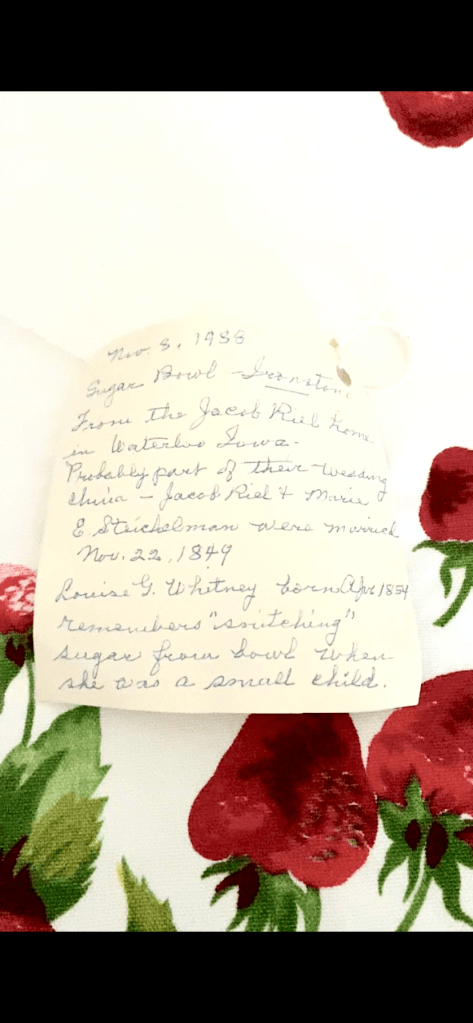 Nov. 8, 1988
Sugar Bowl - Ironstone
From the Jacob Riel home
in Waterloo Iowa -
Probably part of their wedding
china - Jacob Riel & Marie
E. Steichelman were married
Nov. 22, 1849
Louise G. Whitney born Apr 1854
remembers "snitching"
sugar from bowl when
she was a small child.